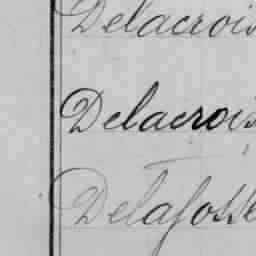 Delacrois
Delacrois
Delafosse